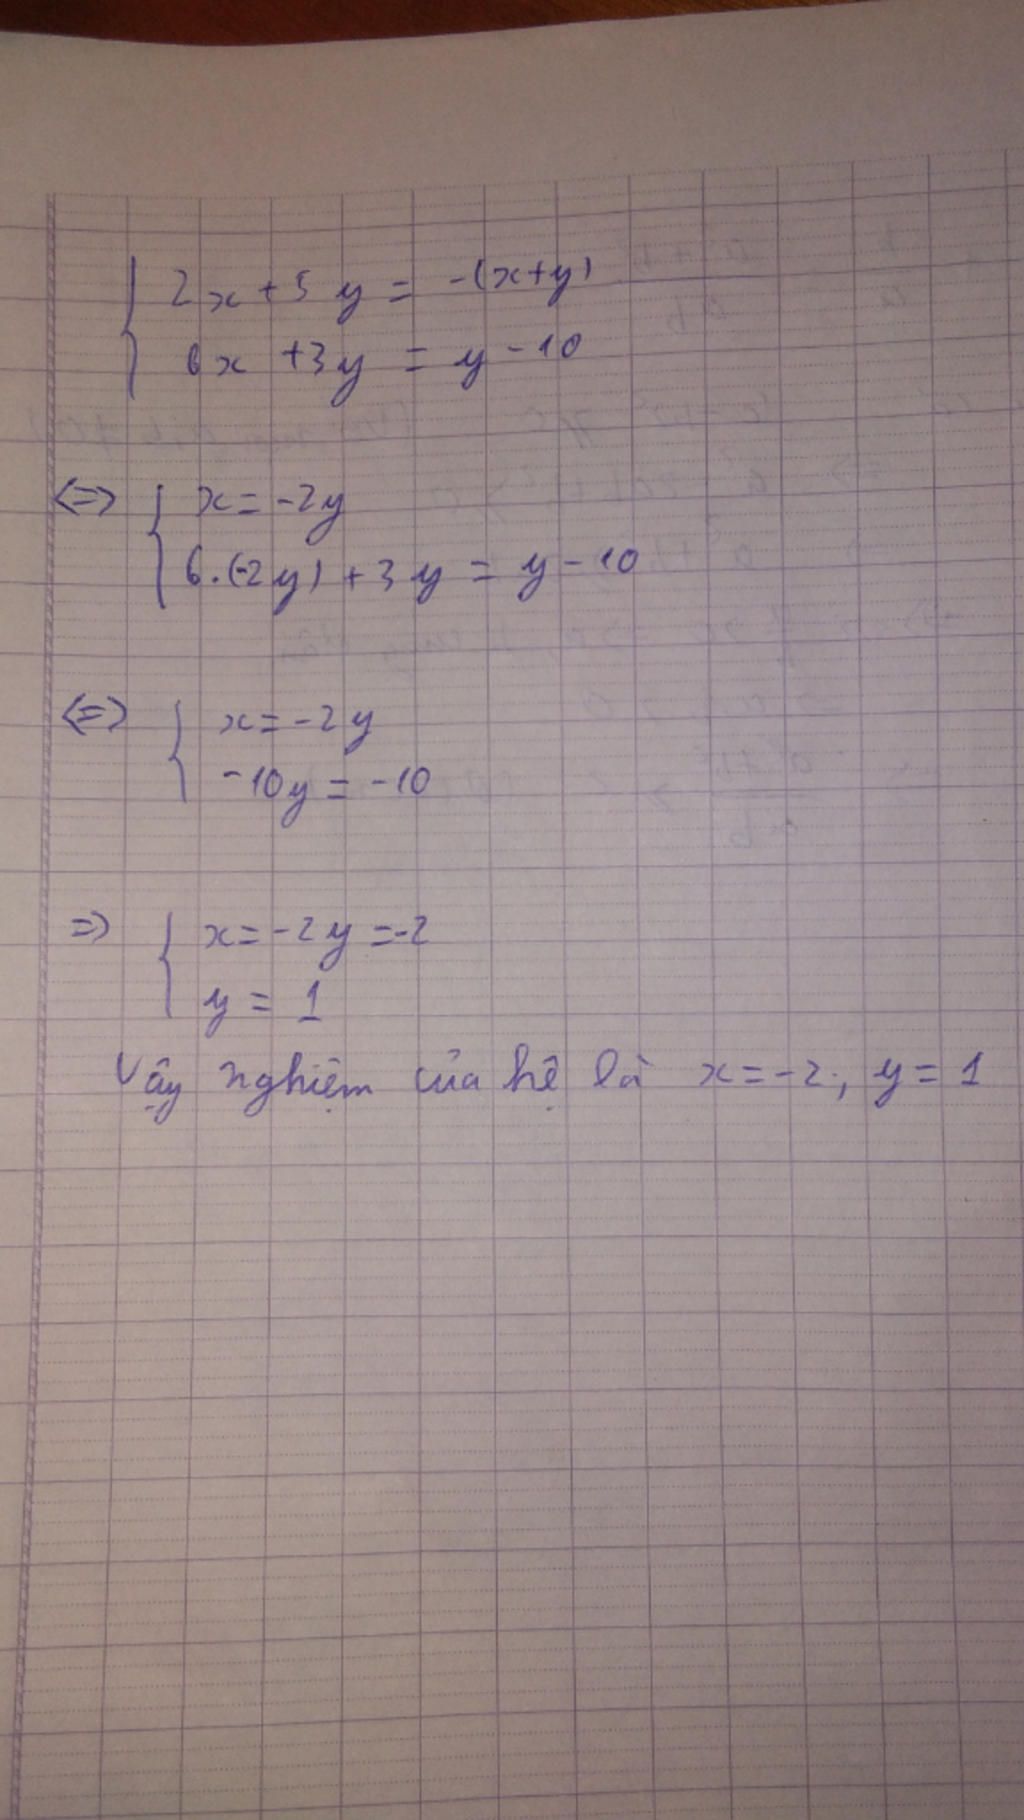 2x + 5y = -(x+y)
6x + 3y = y - 10
<=> x = -2y
6.(-2y) + 3y = y - 10
<=> x = -2y
-10y = -10
=> x = -2y = -2
y = 1
Vậy nghiệm của hệ là x = -2, y = 1